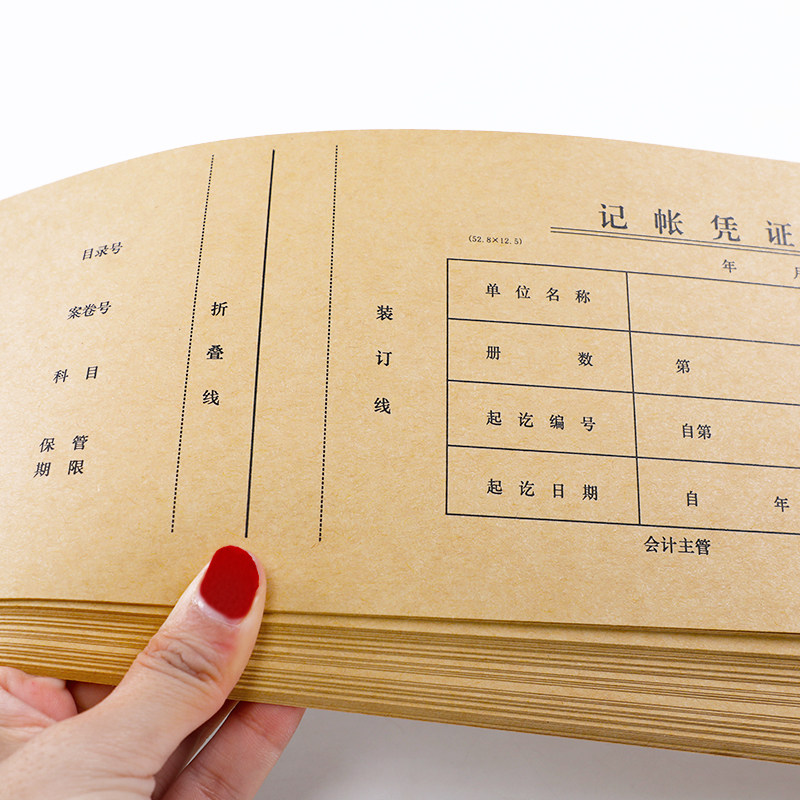 目录号
案卷号
科目
保管
期限
折叠线
装订线
记帐凭证
(52.8×12.5)
年 月
单位名称
册数 第
起讫编号 自第
起讫日期 自 年
会计主管